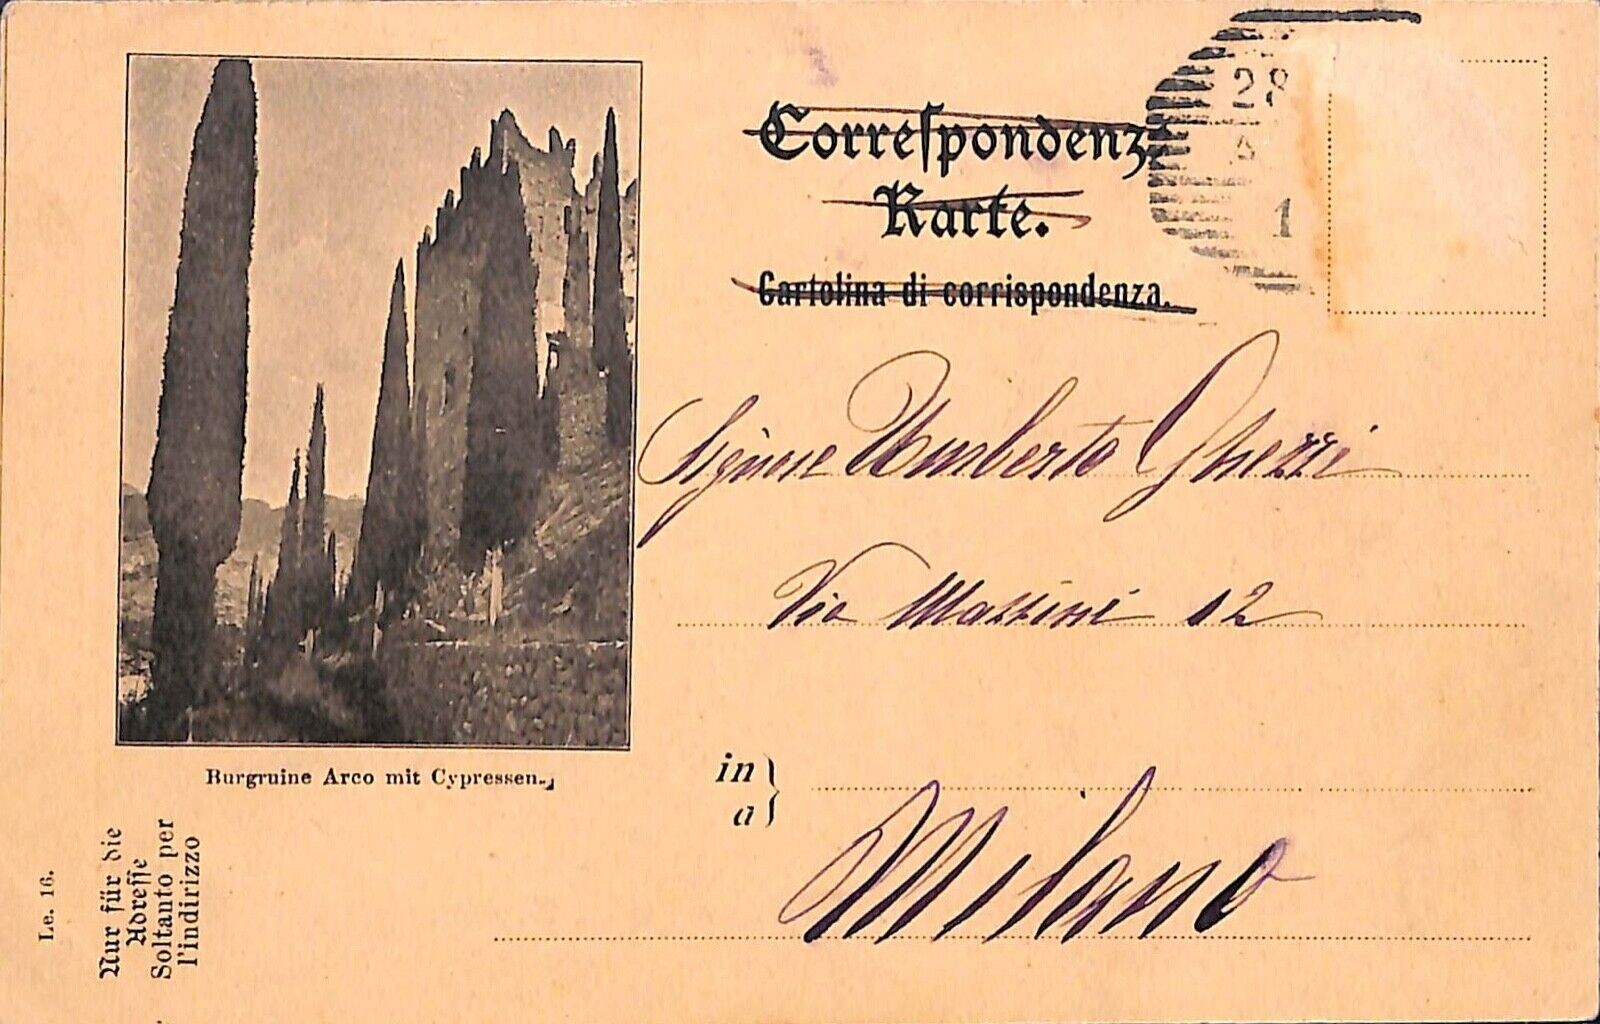 Correſpondenz
Karte.
Cartolina di corrispondenza.
28
1
Signore Umberto Ghezzi
Via Mazzini 12
in
a
Milano
Burgruine Arco mit Cypressen.
Le. 16.
Nur für die
Adreſſe
Soltanto per
l'indirizzo